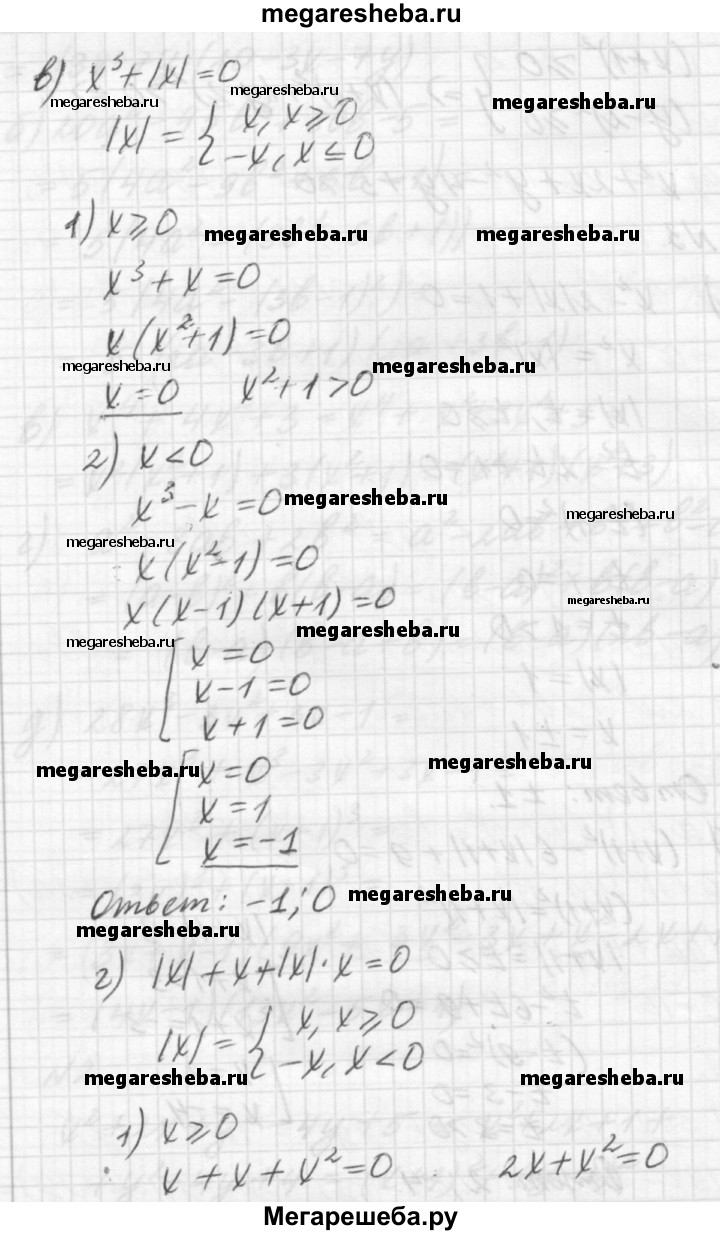 megaresheba.ru
в) x³+|x|=0
megaresheba.ru megaresheba.ru megaresheba.ru
|x| = { x, x⩾0
-x, x≤0
1) x⩾0 megaresheba.ru megaresheba.ru
x³+x=0
x(x²+1)=0
megaresheba.ru megaresheba.ru
x=0 x²+1>0
2) x<0
x³-x=0 megaresheba.ru megaresheba.ru
megaresheba.ru
x(x²-1)=0
x(x-1)(x+1)=0 megaresheba.ru
megaresheba.ru megaresheba.ru
[ x=0
x-1=0
x+1=0
megaresheba.ru megaresheba.ru
[ x=0
x=1
x=-1
Ответ: -1; 0 megaresheba.ru
megaresheba.ru
г) |x|+x+|x|·x=0
|x| = { x, x⩾0
-x, x<0
megaresheba.ru megaresheba.ru
1) x⩾0
x+x+x²=0 2x+x²=0
Мегарешеба.ру